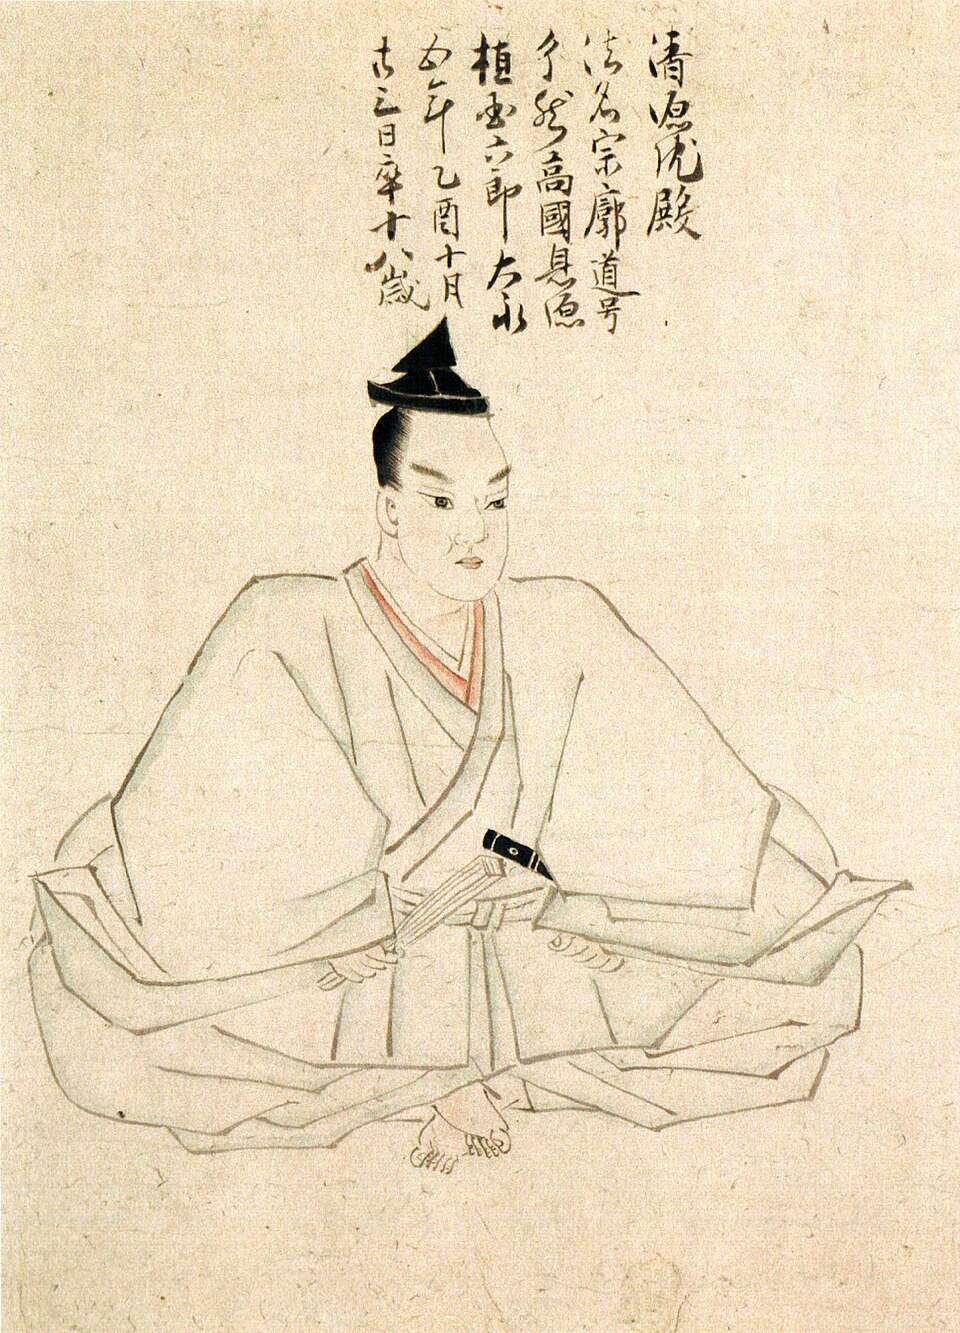 清源院殿
法名宗廓道号
了然高國息源
植国六郎大永
五年乙酉十月
廿三日卒十八歳